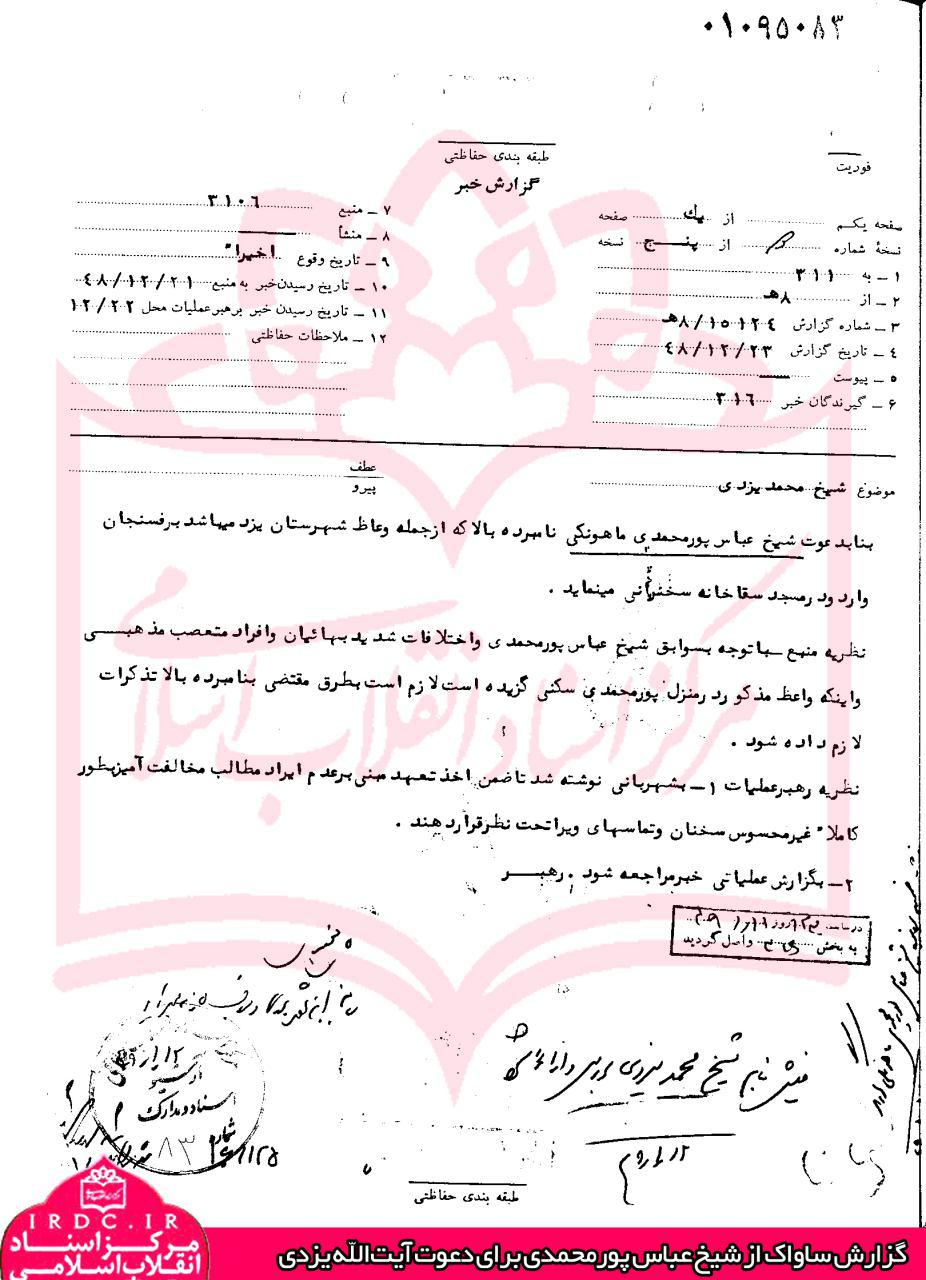 ۰۱۰۹۵۰۸۳
طبقه بندی حفاظتی
گزارش خبر
فوریت
صفحه یکم از یک صفحه
نسخهٔ شماره از پنج نسخه
۱ ـ به ۳۱۱
۲ ـ از ۸هـ
۳ ـ شماره گزارش ۸/۱۵۱۲۴هـ
۴ ـ تاریخ گزارش ۴۸/۱۲/۲۳
۵ ـ پیوست
۶ ـ گیرندگان خبر ۳۱۶
۷ ـ منبع ۳۱۰۶
۸ ـ منشأ
۹ ـ تاریخ وقوع اخیراً
۱۰ ـ تاریخ رسیدن خبر به منبع ۴۸/۱۲/۲۱
۱۱ ـ تاریخ رسیدن خبر برهبر عملیات محل ۱۲/۲۲
۱۲ ـ ملاحظات حفاظتی
موضوع شیخ محمد یزدی
عطف
پیرو
بنا بدعوت شیخ عباس پورمحمدی ماهونکی نامبرده بالا که ازجمله وعاظ شهرستان یزد میباشد برفسنجان
وارد و در مسجد سقاخانه سخنرانی مینماید .
نظریه منبع ـ با توجه بسوابق شیخ عباس پورمحمدی واختلافات شدید بهائیان وافراد متعصب مذهبــی
واینکه واعظ مذکور در منزل پورمحمدی سکنی گزیده است لازم است بطرق مقتضی بنامبرده بالا تذکرات
لازم داده شود .
نظریه رهبرعملیات ۱ ـ بشهربانی نوشته شد تا ضمن اخذ تعهد مبنی برعدم ایراد مطالب مخالفت آمیز بطور
کاملاً غیرمحسوس سخنان وتماسهای ویرا تحت نظر قرار دهند .
۲ ـ بگزارش عملیاتی خبر مراجعه شود . رهبــر
به بخش واصل گردید
شیخ محمد یزدی
اسناد و مدارک
شماره
۸۳
طبقه بندی حفاظتی
مرکز اسناد انقلاب اسلامی
IRDC.IR
مرکز اسناد
انقلاب اسلامی
گزارش ساواک از شیخ عباس پورمحمدی برای دعوت آیت‌الله یزدی